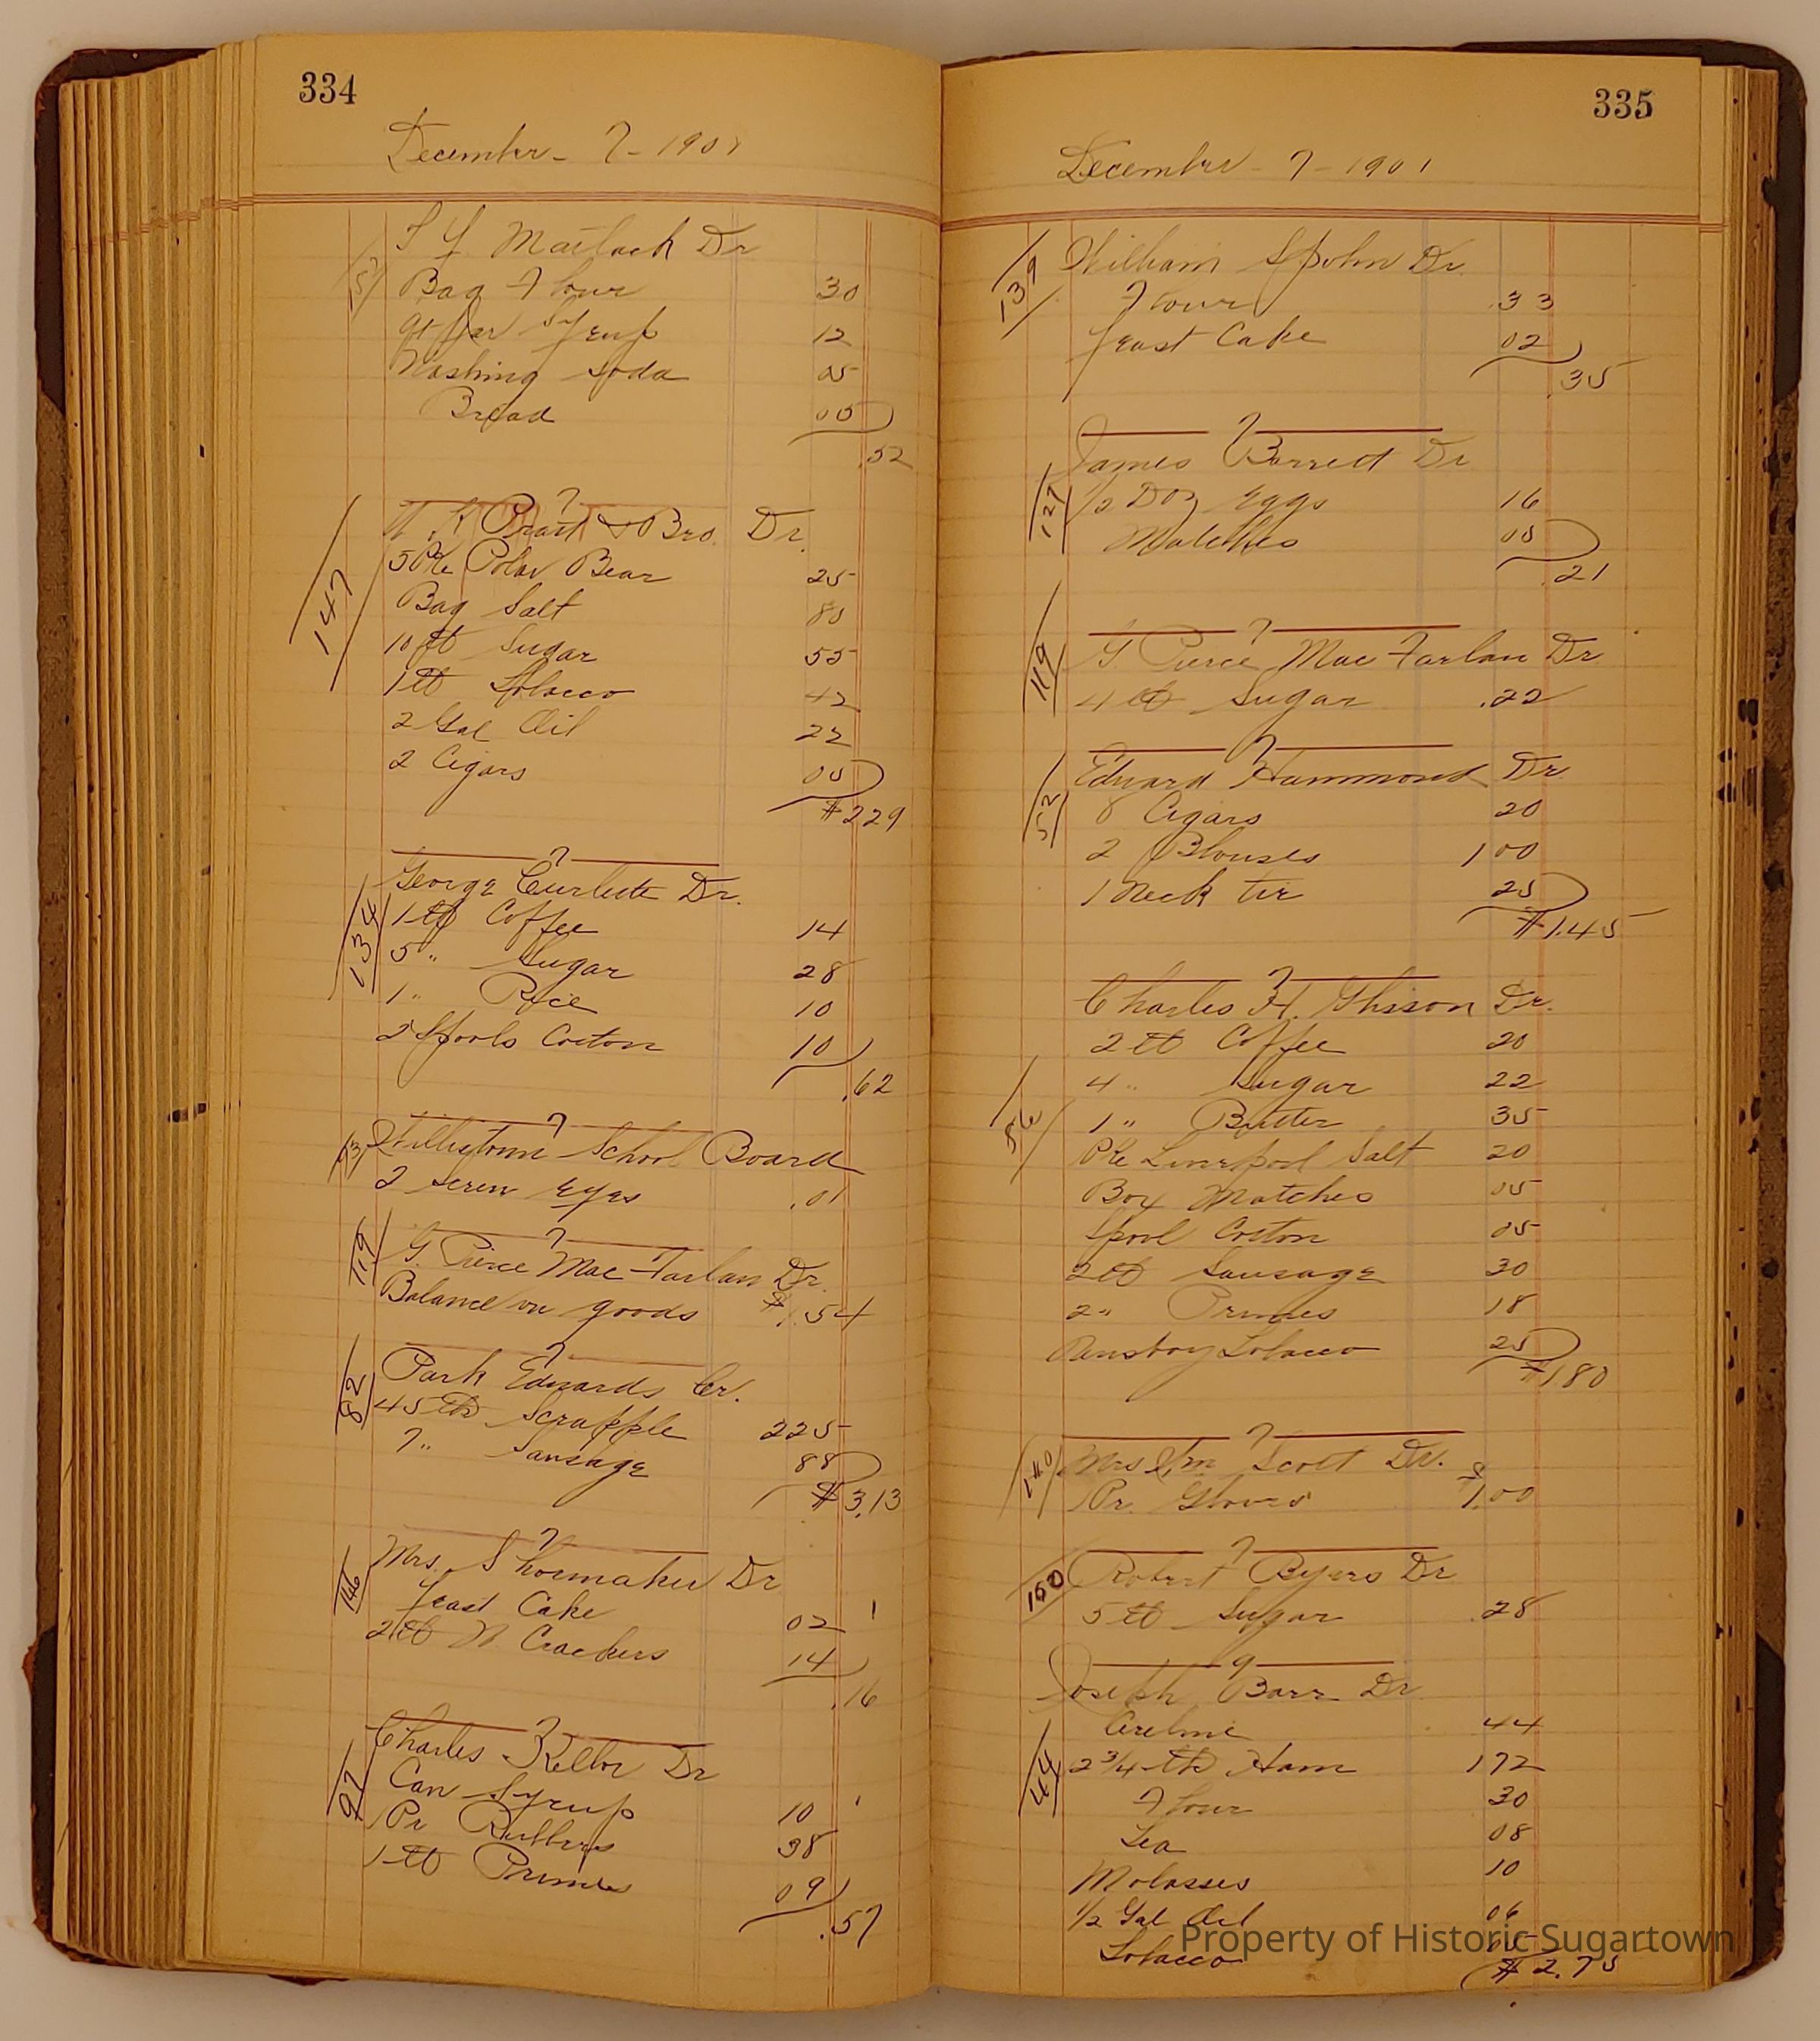 334
December - 7 - 1901
S Y. Matlack Dr
Bag Flour 30
qt Jar Syrup 12
Washing Soda 05
Bread 05
.52
7
147
& Bro. Dr.
5 Pke Polar Bear 25
Bag Salt 80
10 lb Sugar 55
1 lb Tobacco 42
2 Gal Oil 22
2 Cigars 05
$2 29
7
134
George Dr.
1 lb Coffee 14
5 " Sugar 28
1 " Rice 10
2 Spools Cotton 10
.62
7
Willistown School Board
2 Screw Eyes .01
7
119
G. Pierce Mac Farlan Dr.
Balance on goods $1.54
7
82
Park Edwards Cr.
45 lbs Scrapple 2 25
7 " Sausage 88
$3.13
7
146
Mrs. Shoemaker Dr
Yeast Cake 02
2 lb N Crackers 14
.16
7
97
Charles Keller Dr
Can Syrup 10
1 Pr Rubbers 38
1 lb Prunes 09
.57
335
December - 7 - 1901
139
William Spohn Dr.
Flour .33
Yeast Cake 02
.35
7
127
James Barrett Dr
1/2 Doz Eggs 16
Matches 05
.21
7
119
G Pierce Mac Farlan Dr
4 lb Sugar .22
7
52
Edward Hammond Dr
8 Cigars 20
2 Blouses 1 00
1 Neck tie 25
$1.45
7
56
Charles H. Dr.
2 lb Coffee 20
4 " Sugar 22
1 " Butter 35
Pke Liverpool Salt 20
Box Matches 05
Spool Cotton 05
2 lb Sausage 30
2 " Prunes 18
Tobacco 25
$1 80
7
140
Mrs Wm. Scott Dr.
1 Pr. Gloves $1.00
7
150
Robert Byers Dr
5 lb Sugar .28
9
44
Joseph Barr Dr
44
2 3/4 lb Ham 1 72
Flour 30
Tea 08
Molasses 10
1/2 Gal Oil 06
Tobacco 05
$2.75
Property of Historic Sugartown